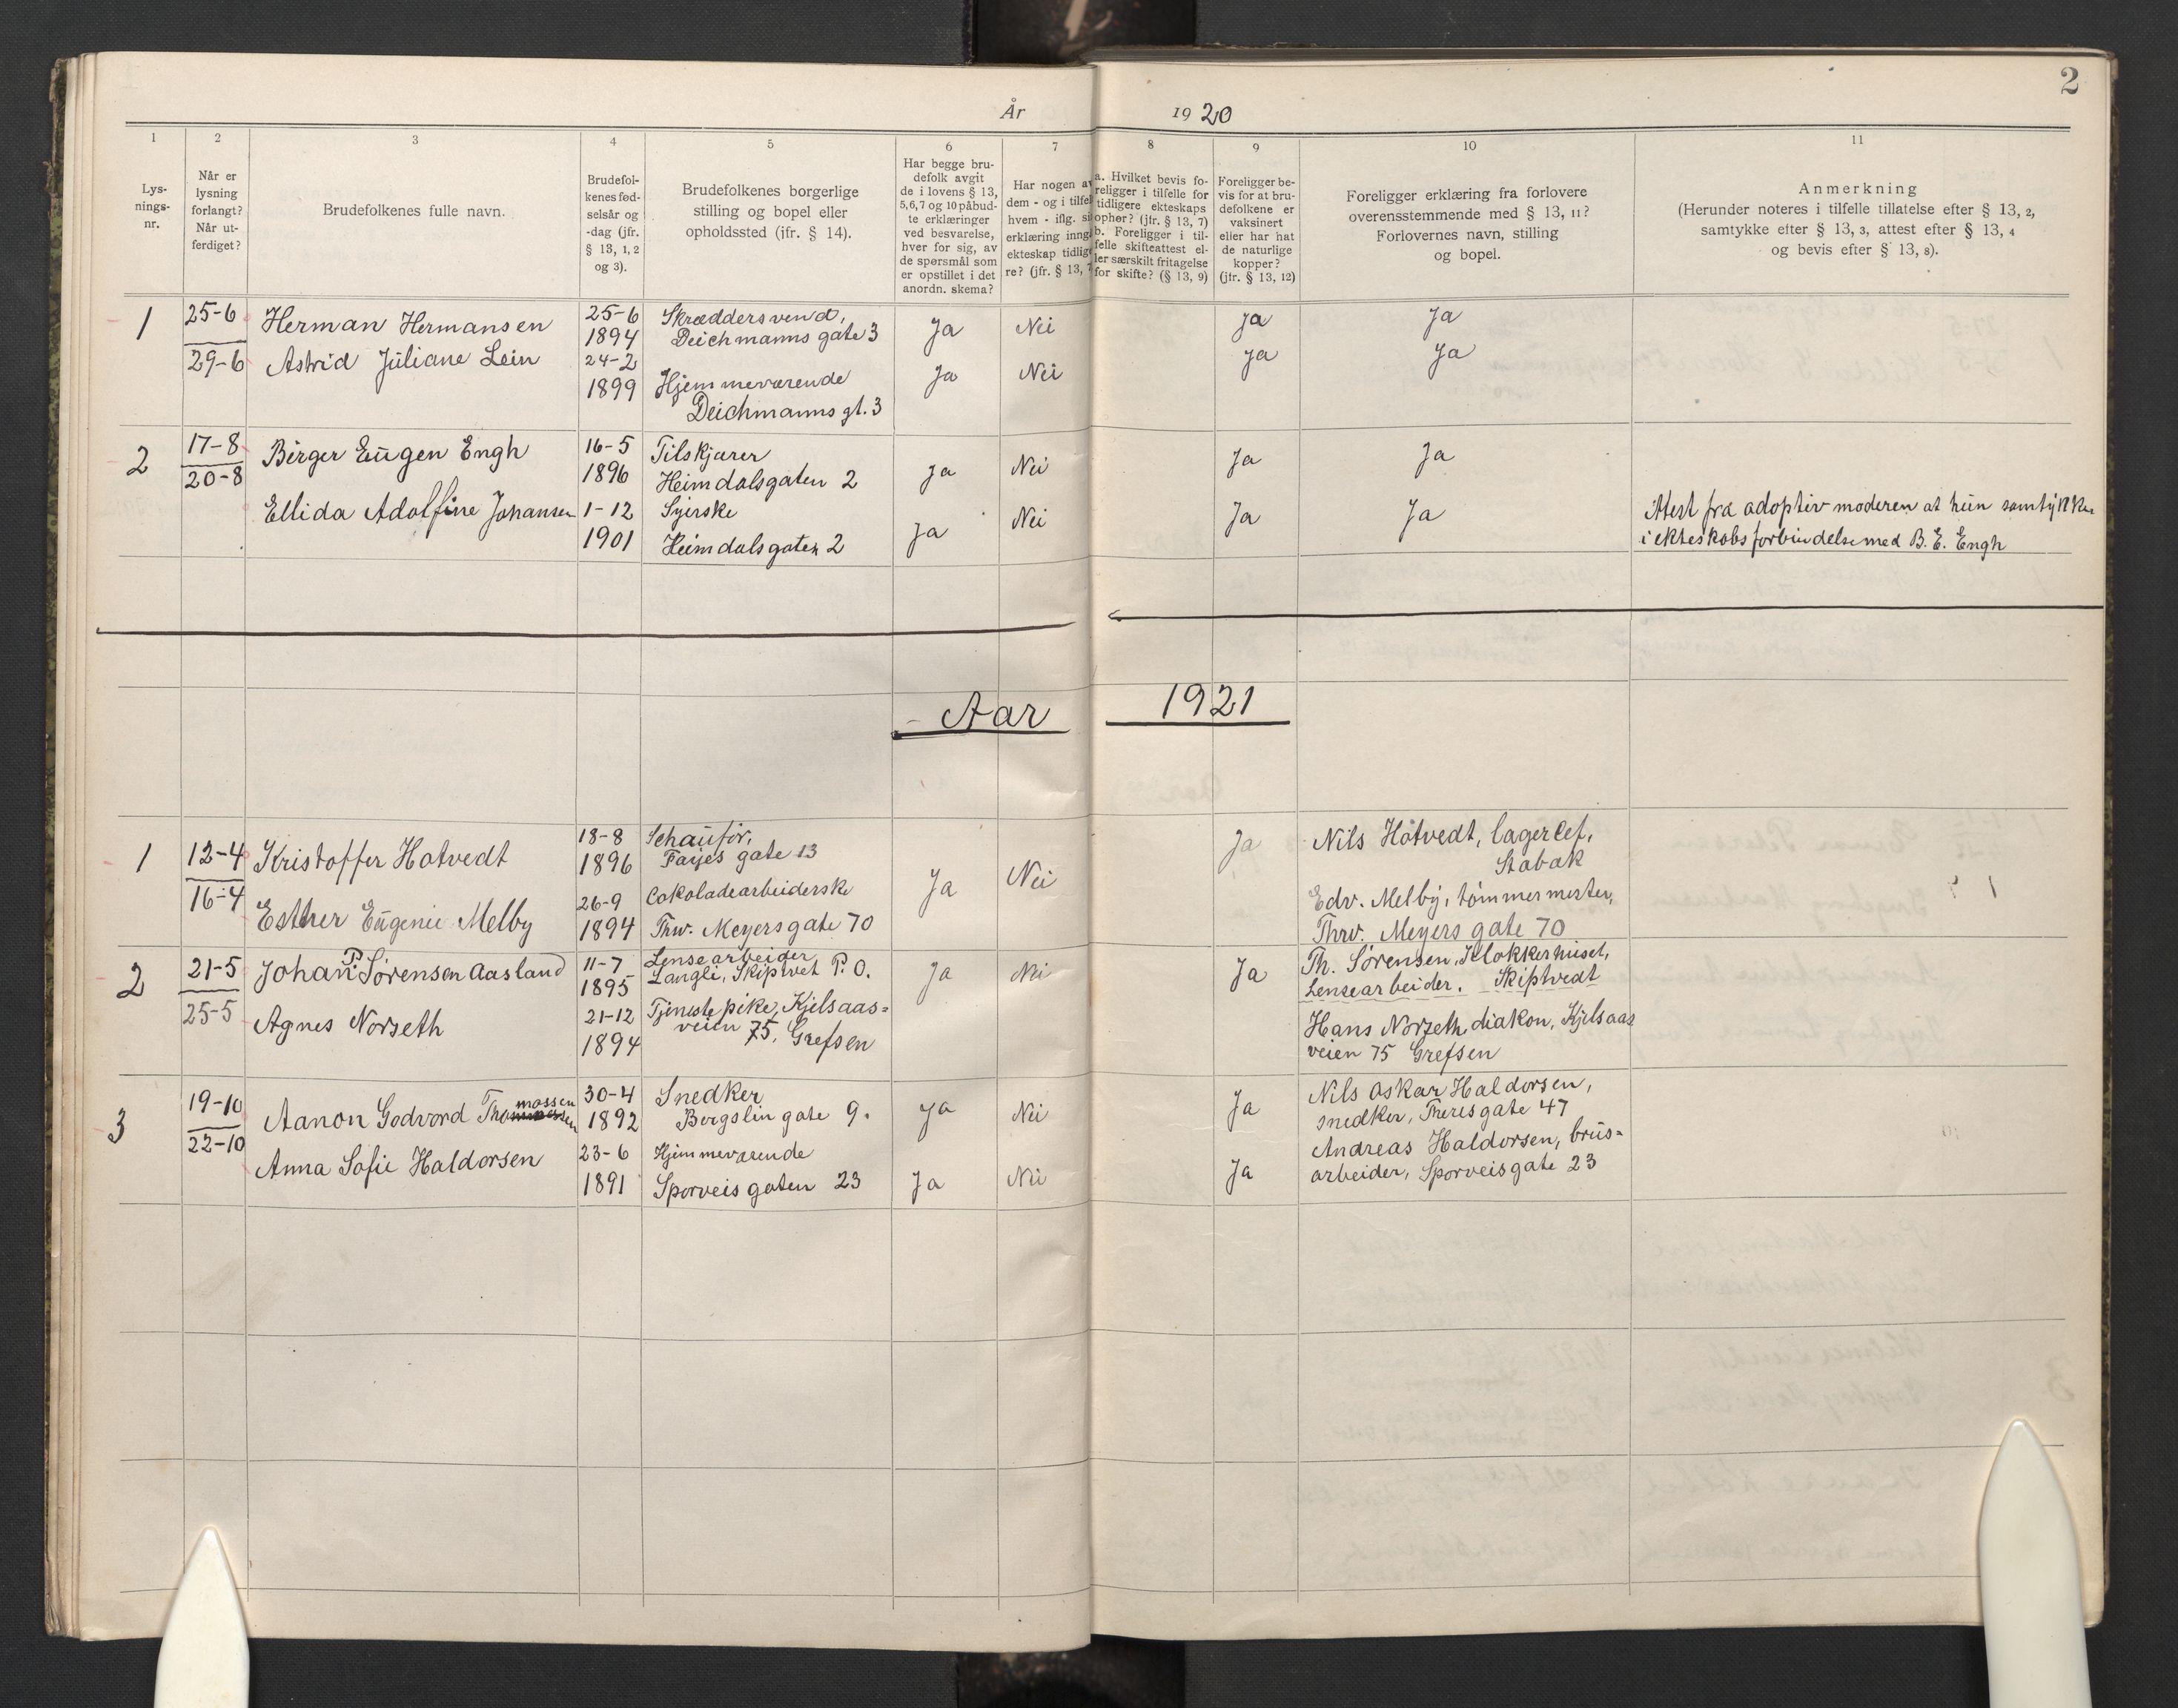 2
År 1920
1
2
3
4
5
6
7
8
9
10
11
Lys-
nings-
nr.
Når er
lysning
forlangt?
Når ut-
ferdiget?
Brudefolkenes fulle navn.
Brudefol-
kenes fød-
selsår og
-dag (jfr.
§ 13, 1, 2
og 3).
Brudefolkenes borgerlige
stilling og bopel eller
opholdssted (jfr. § 14).
Har begge bru-
defolk avgit
de i lovens § 13,
5, 6, 7 og 10 påbud-
te erklæringer
ved besvarelse,
hver for sig, av
de spørsmål som
er opstillet i det
anordn. skema?
Har nogen av
dem - og i tilfel
hvem - iflg. si
erklæring inng
ekteskap tidlig
re? (jfr. § 13, 7
a. Hvilket bevis fo-
religger i tilfelle for
tidligere ekteskaps
ophør? (jfr. § 13, 7)
b. Foreligger i til-
felle skifteattest el-
ler særskilt fritagelse
for skifte? (§ 13, 9)
Foreligger be-
vis for at bru-
defolkene er
vaksinert
eller har hat
de naturlige
kopper?
(jfr. § 13, 12)
Foreligger erklæring fra forlovere
overensstemmende med § 13, 11?
Forlovernes navn, stilling
og bopel.
Anmerkning
(Herunder noteres i tilfelle tillatelse efter § 13, 2,
samtykke efter § 13, 3, attest efter § 13, 4
og bevis efter § 13, 8).
1
25-6
29-6
Herman Hermansen
25-6
1894
Skræddersvend,
Deichmanns gate 3
Ja
Nei
Ja
Ja
Astrid Juliane Lein
24-2
1899
Hjemmeværende
Deichmanns gt. 3
Ja
Nei
Ja
Ja
2
17-8
20-8
Birger Eugen Engh
16-5
1896
Tilskjærer
Heimdalsgaten 2
Ja
Nei
Ja
Ja
Ellida Adolfine Johansen
1-12
1901
Syerske
Heimdalsgaten 2
Ja
Nei
Ja
Ja
Attest fra adoptivmoderen at hun samtykker
i ekteskabsforbindelse med B. E. Engh
Aar 1921
1
12-4
16-4
Kristoffer Hotvedt
18-8
1896
Schauför,
Fayes gate 13
Ja
Nei
Ja
Nils Hotvedt, lagerčef,
Stabæk
Esther Eugenie Melby
26-9
1894
Cokoladearbeiderske
Thv. Meyersgate 70
Edv. Melby, tømmermester,
Thrv. Meyers gate 70
2
21-5
25-5
Johan P. Sørensen Aasland
11-7
1895
Lensearbeider
Langli, Skiptvet P. O.
Ja
Nei
Ja
Th. Sørensen, Klokkerhuset,
Lensearbeider. Skiptvedt
Agnes Norseth
21-12
1894
Tjenestepike, Kjelsaas-
veien 75, Grefsen
Hans Norseth, diakon, Kjelsaas
veien 75 Grefsen
3
19-10
22-10
Aanon Godvord Thomassen
30-4
1892
Snedker
Bergslin gate 9.
Ja
Nei
Ja
Nils Oskar Haldorsen,
snedker, Theresgate 47
Anna Sofie Haldorsen
23-6
1891
Hjemmeværende
Sporveisgaten 23
Ja
Nei
Ja
Andreas Haldorsen, brus-
arbeider, Sporveisgate 23